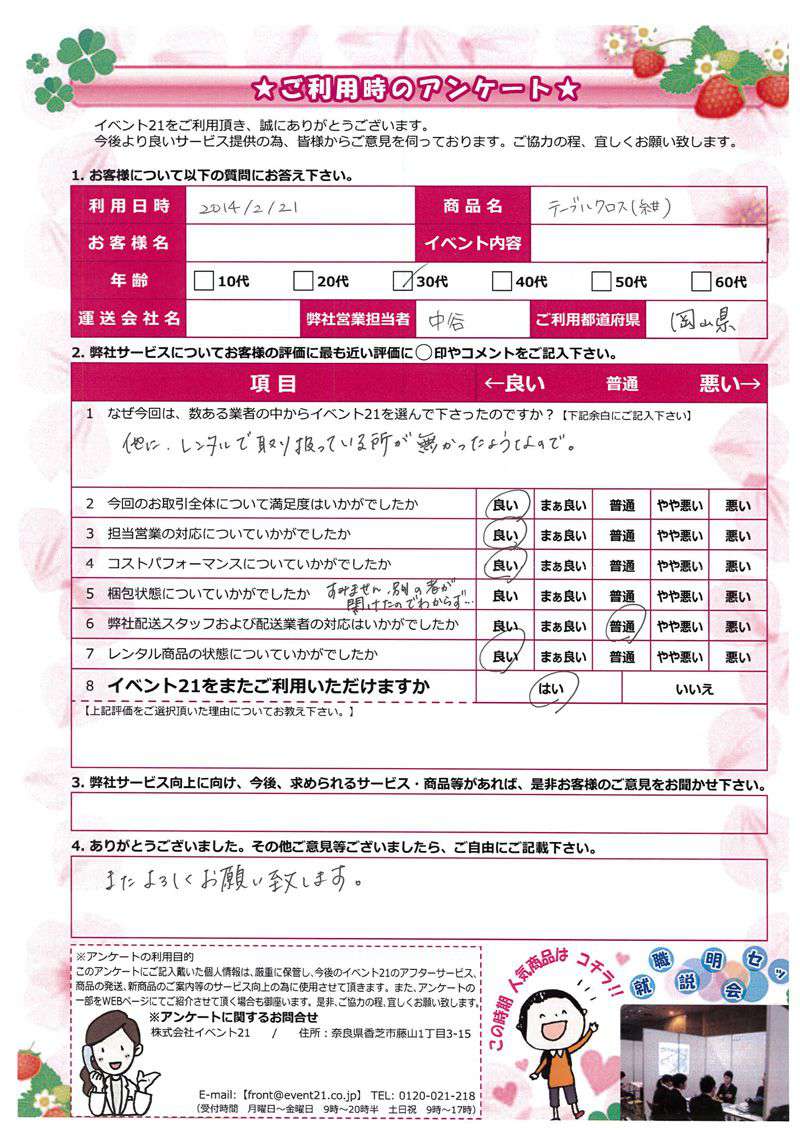 ★ご利用時のアンケート★
イベント21をご利用頂き、誠にありがとうございます。
今後より良いサービス提供の為、皆様からご意見を伺っております。ご協力の程、宜しくお願い致します。
1. お客様について以下の質問にお答え下さい。
利用日時 2014/2/21 商品名 テーブルクロス(紺)
お客様名 イベント内容
年齢 10代 20代 30代 40代 50代 60代
運送会社名 弊社営業担当者 中谷 ご利用都道府県 岡山県
2. 弊社サービスについてお客様の評価に最も近い評価に○印やコメントをご記入下さい。
項目 ←良い 普通 悪い→
1 なぜ今回は、数ある業者の中からイベント21を選んで下さったのですか？【下記余白にご記入下さい】
他に、レンタルで取り扱っている所が無かったようなので。
2 今回のお取引全体について満足度はいかがでしたか 良い まぁ良い 普通 やや悪い 悪い
3 担当営業の対応についていかがでしたか 良い まぁ良い 普通 やや悪い 悪い
4 コストパフォーマンスについていかがでしたか 良い まぁ良い 普通 やや悪い 悪い
5 梱包状態についていかがでしたか すみません、別の者が 良い まぁ良い 普通 やや悪い 悪い
開けたのでわからず…
6 弊社配送スタッフおよび配送業者の対応はいかがでしたか 良い まぁ良い 普通 やや悪い 悪い
7 レンタル商品の状態についていかがでしたか 良い まぁ良い 普通 やや悪い 悪い
8 イベント21をまたご利用いただけますか はい いいえ
【上記評価をご選択頂いた理由についてお教え下さい。】
3. 弊社サービス向上に向け、今後、求められるサービス・商品等があれば、是非お客様のご意見をお聞かせ下さい。
4. ありがとうございました。その他ご意見等ございましたら、ご自由にご記載下さい。
またよろしくお願い致します。
※アンケートの利用目的
このアンケートにご記入戴いた個人情報は、厳重に保管し、今後のイベント21のアフターサービス、
商品の発送、新商品のご案内等のサービス向上の為に使用させて頂きます。また、アンケートの
一部をWEBページにてご紹介させて頂く場合も御座います。是非、ご協力の程、宜しくお願い致します。
※アンケートに関するお問合せ
株式会社イベント21 / 住所：奈良県香芝市藤山1丁目3-15
E-mail:【front@event21.co.jp】 TEL: 0120-021-218
(受付時間 月曜日～金曜日 9時～20時半 土日祝 9時～17時)
この時期 人気商品は コチラ!!
就職説明会セッ